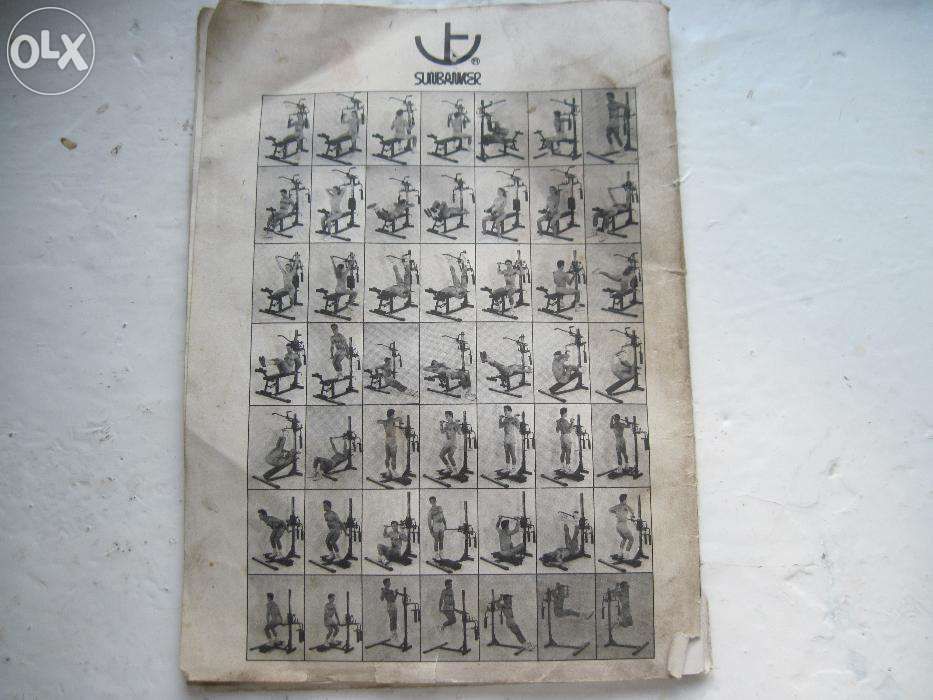 OLX
®
SUNBANKER